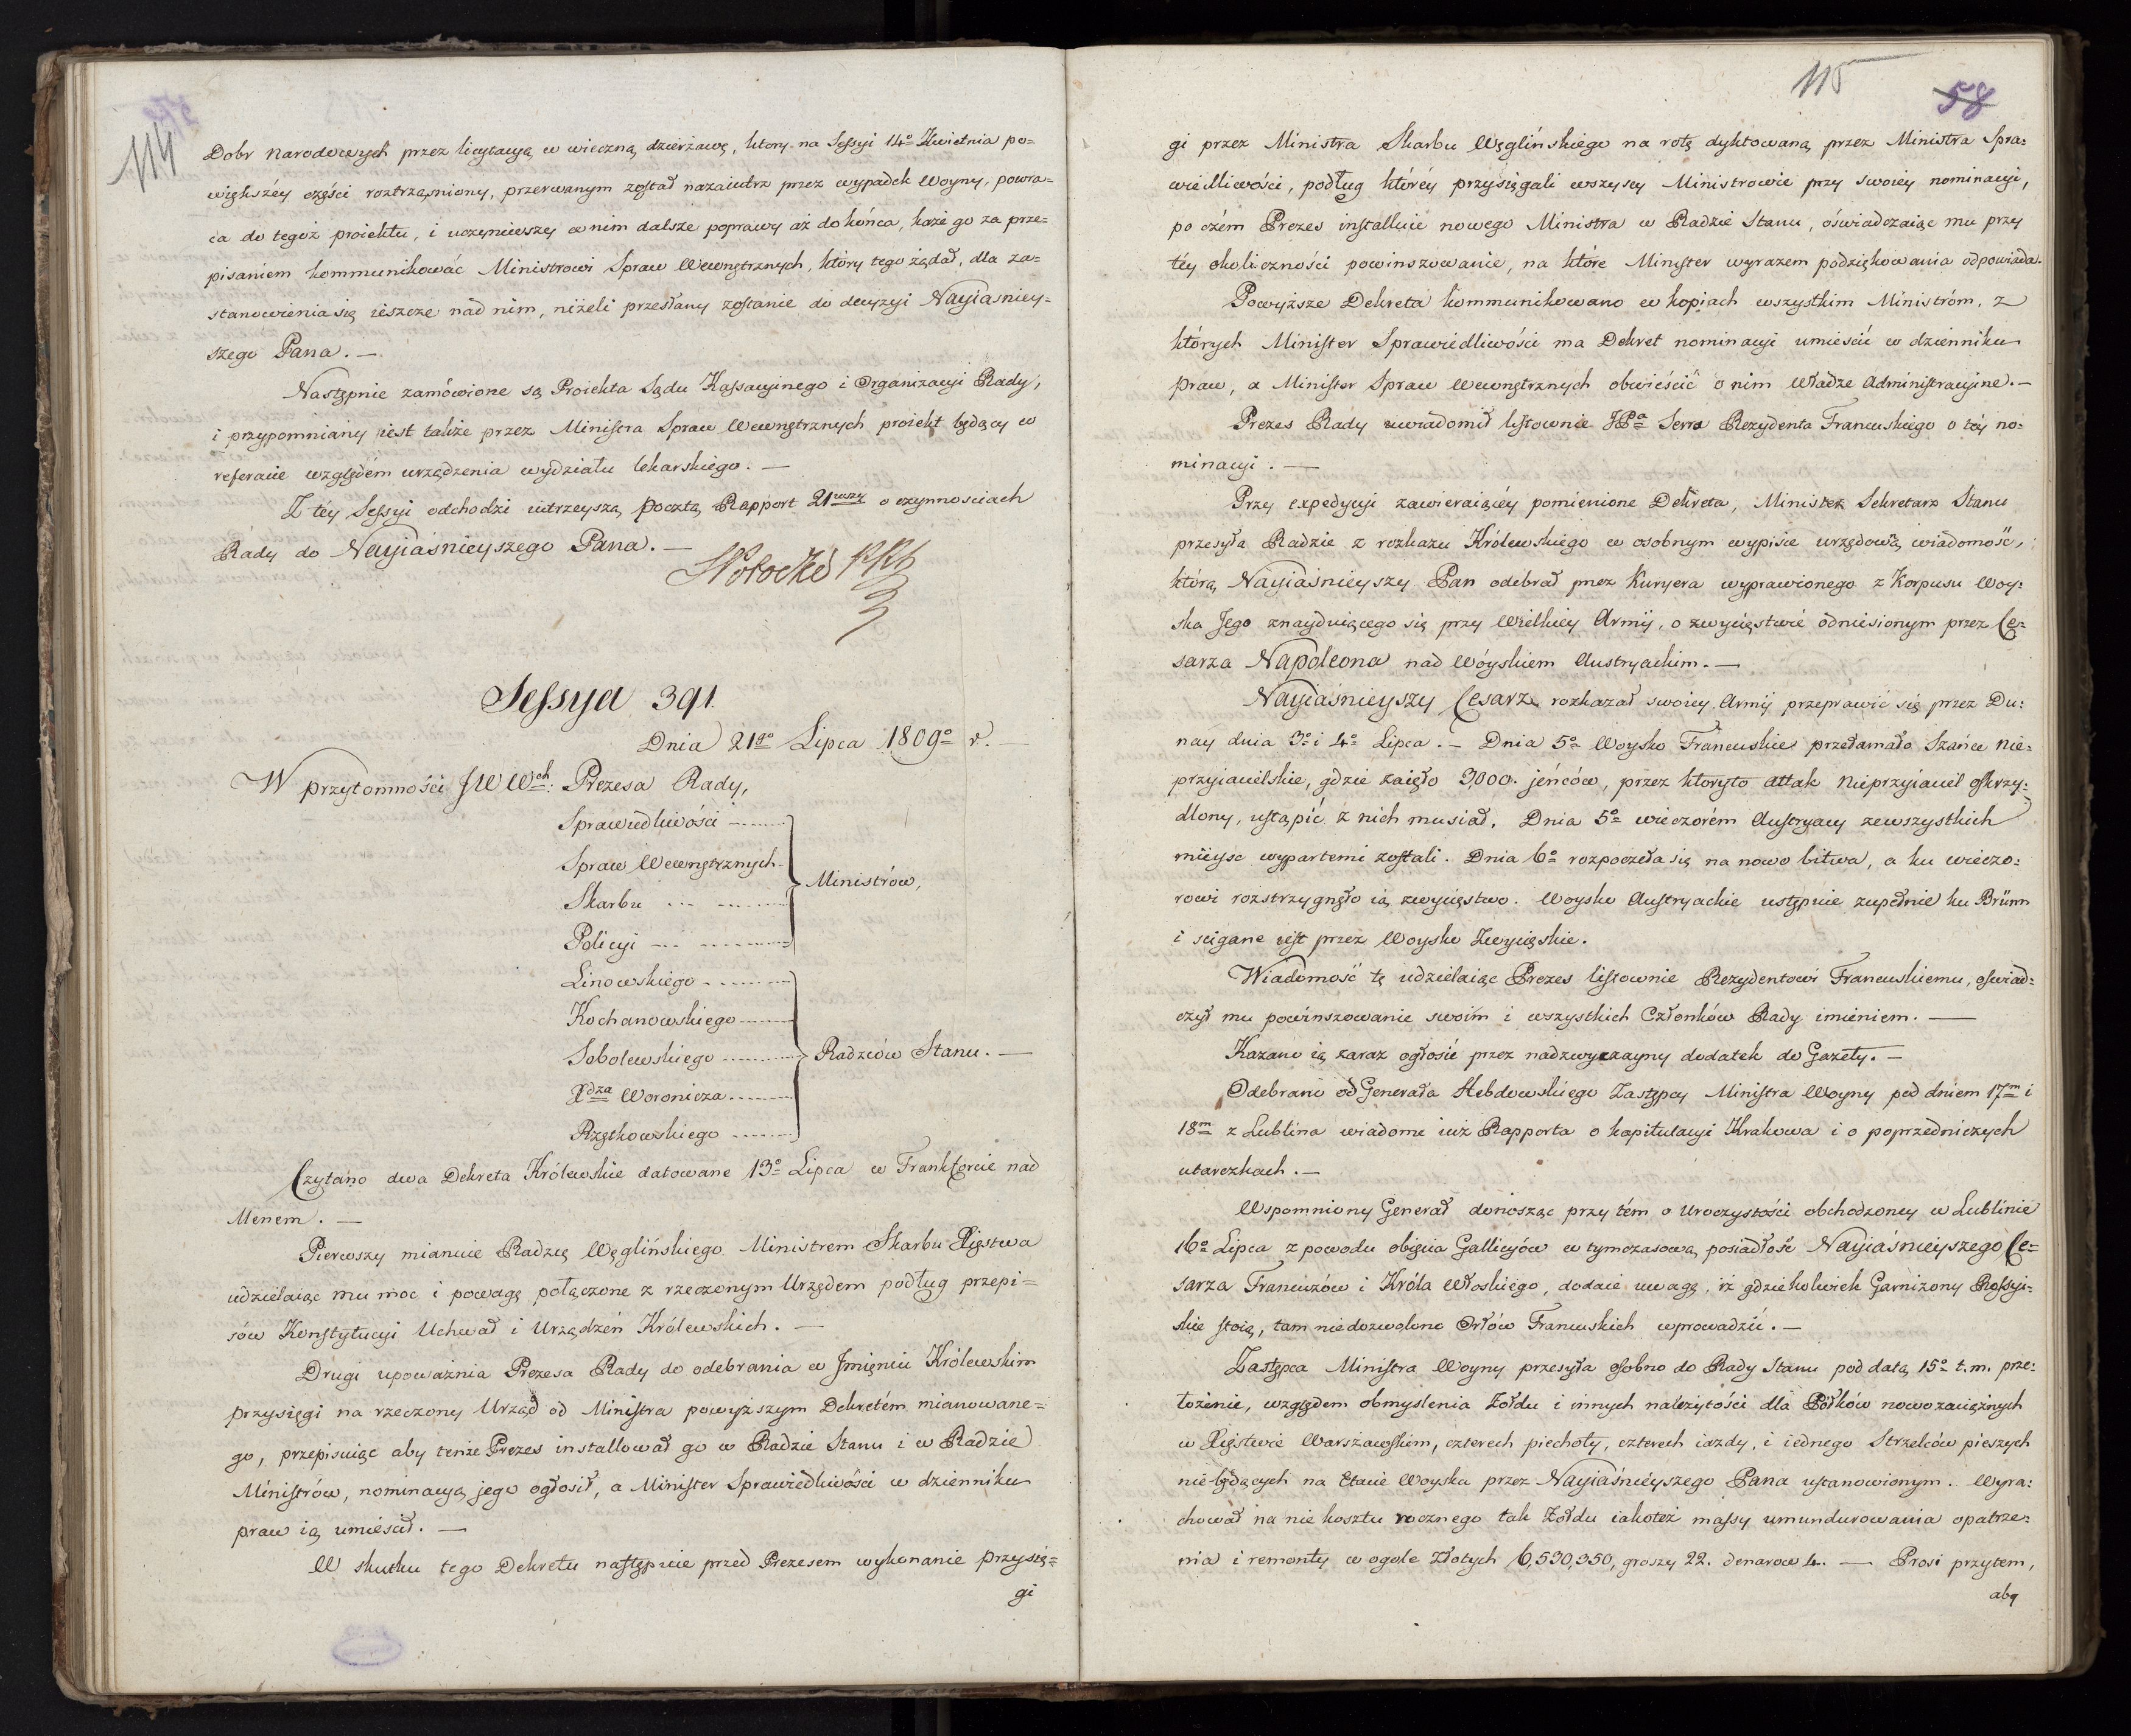 114
Dobr Narodowych przez licytacyą w wieczną dzierżawę, ktory na Sessyi 14º Kwietnia po=
większéy części roztrząsniony, przerwanym został nazaiutrz przez wypadek Woyny, powra=
ca do tegoż proiektu, i uczyniwszy w nim dalsze poprawy aż do końca, każe go za prze=
pisaniem kommunikować Ministrowi Spraw Wewnętrznych, który tego żądał, dla za=
stanowienia się ieszcze nad nim, niżeli przesłany zostanie do decyzyi Nayiaśniey=
szego Pana. —
Następnie zamówione są Proiekta Sądu Kassacyinego i Organizacyi Rady,
i przypomniany iest także przez Ministra Spraw Wewnętrznych proiekt będący w
referacie względem urządzenia wydziału lekarskiego. —
Z téy Sessyi odchodzi iutrzeyszą pocztą Rapport 21wszy o czynnosciach
Rady do Nayiaśnieyszego Pana. —
Potocki
Sessya 391.
Dnia 21go Lipca 1809º r. —
W przytomności JWWch: Prezesa Rady,
Sprawiedliwości
Spraw Wewnętrznych
Ministrów,
Skarbu
Policyi
Linowskiego
Kochanowskiego
Sobolewskiego
Radzców Stanu. —
Xdza Woronicza
Rzętkowskiego
Czytano dwa Dekreta Królewskie datowane 13º Lipca w Frankforcie nad
Menem. —
Pierwszy mianuie Radzcę Węglińskiego Ministrem Skarbu Xięstwa
udzielaiąc mu moc i powagę połączone z rzeczonym Urzędem podług przepi=
sów Konstytucyi Uchwał i Urządzeń Królewskich. —
Drugi upoważnia Prezesa Rady do odebrania w Jmięniu Królewskim
przysięgi na rzeczony Urząd od Ministra powyższym Dekretém mianowane=
go, przepisuiąc aby tenże Prezes installował go w Radzie Stanu i w Radzie
Ministrów, nominacyą jego ogłosił, a Minister Sprawiedliwości w dzienniku
praw ią umieścił. —
W skutku tego Dekretu następuie przed Prezesem wykonanie przysię=
gi
115
58
gi przez Ministra Skarbu Węglińskiego na rotę dyktowaną przez Ministra Spra=
wiedliwości, podług któréy przysięgali wszyscy Ministrowie przy swoiéy nominacyi,
po czém Prezes installuie nowego Ministra w Radzie Stanu, óświadczaiąc mu przy
téy okoliczności powinszowanie, na które Minister wyrazem podziękowania odpowiada.
Powyższe Dekreta kommunikowano w kopiach wszystkim Ministróm, z
których Minister Sprawiedliwości ma Dekret nominacyi umieścić w dzienniku
praw, a Minister Spraw Wewnętrznych obwieścić o nim Władze Administracyine. —
Prezes Rady uwiadomił listownie JPa Serra Rezydenta Francuskiego o téy no=
minacyi. —
Przy expedycyi zawieraiącéy pomienione Dekreta, Minister Sekretarz Stanu
przesyła Radzie z rozkazu Królewskiego w osobnym wypisie urzędową wiadomość,
którą Nayiaśnieyszy Pan odebrał przez Kuryera wyprawionego z Korpusu Woy=
ska Jego znayduiącego się przy Wielkiey Armij, o zwycięstwie odniesionym przez Ce=
sarza Napoleona nad Wóyskiem Austryackim. —
Nayiaśnieyszy Cesarz rozkazał swoiey Armij przeprawić się przez Du=
nay dnia 3º i 4º Lipca. — Dnia 5º Woysko Francuskie przełamało Szańce Nie=
przyiacielskie, gdzie zaięło 3,000. jeńców, przez ktoryto attak Nieprzyiaciel oskrzy=
dlony, ustąpić z nich musiał. Dnia 5º wieczorém Austryacy zewszystkich
mieysc wypartemi zostali. Dnia 6º rozpoczeła się na nowo bitwa, a ku wieczo=
rowi rozstrzygnęło ią zwycięstwo. Woysko Austryackie ustępuie zupełnie ku Brünn
i ścigane iest przez Woysko Zwycięskie.
Wiadomość tę udzielaiąc Prezes listownie Rezydentowi Francuskiemu, oświad=
czył mu powinszowanie swoim i wszystkich Członków Rady imieniem. —
Kazano ią zaraz ogłosić przez nadzwyczayny dodatek do Gazety. —
Odebrano od Generała Hebdowskiego Zastępcy Ministra Woyny pod dniem 17m i
18m z Lublina wiadome iuż Rapporta o kapitulacyi Krakowa i o poprzedniczych
utarczkach. —
Wspomniony Generał donosząc przy tém o Uroczystości obchodzoney w Lublinie
16º Lipca z powodu obięcia Gallicyów w tymczasową posiadłość Nayiaśnieyszego Ce=
sarza Francuzów i Króla Włoskiego, dodaie uwagę, iż gdziekolwiek Garnizony Rossyi=
skie stoią, tam niedozwolono Orłów Francuskich wprowadzić. —
Zastępca Ministra Woyny przesyła osobno do Rady Stanu pod datą 15º t.m. prze=
łożenie, względem obmyslenia Żołdu i innych należytości dla Półków nowozaciężnych
w Xięstwie Warszawskiem, czterech piechoty, czterech iazdy, i iednego Strzelców pieszych
nie będących na Etacie Woyska przez Nayiaśnieyszego Pana ustanowionym. Wyra=
chował na nie kosztu rocznego tak Żołdu iakoteż massy umundurowania opatrze=
nia i remonty w ogole Złotych 6,530,350, groszy 22. denarow 4. — Prosi przytem,
aby